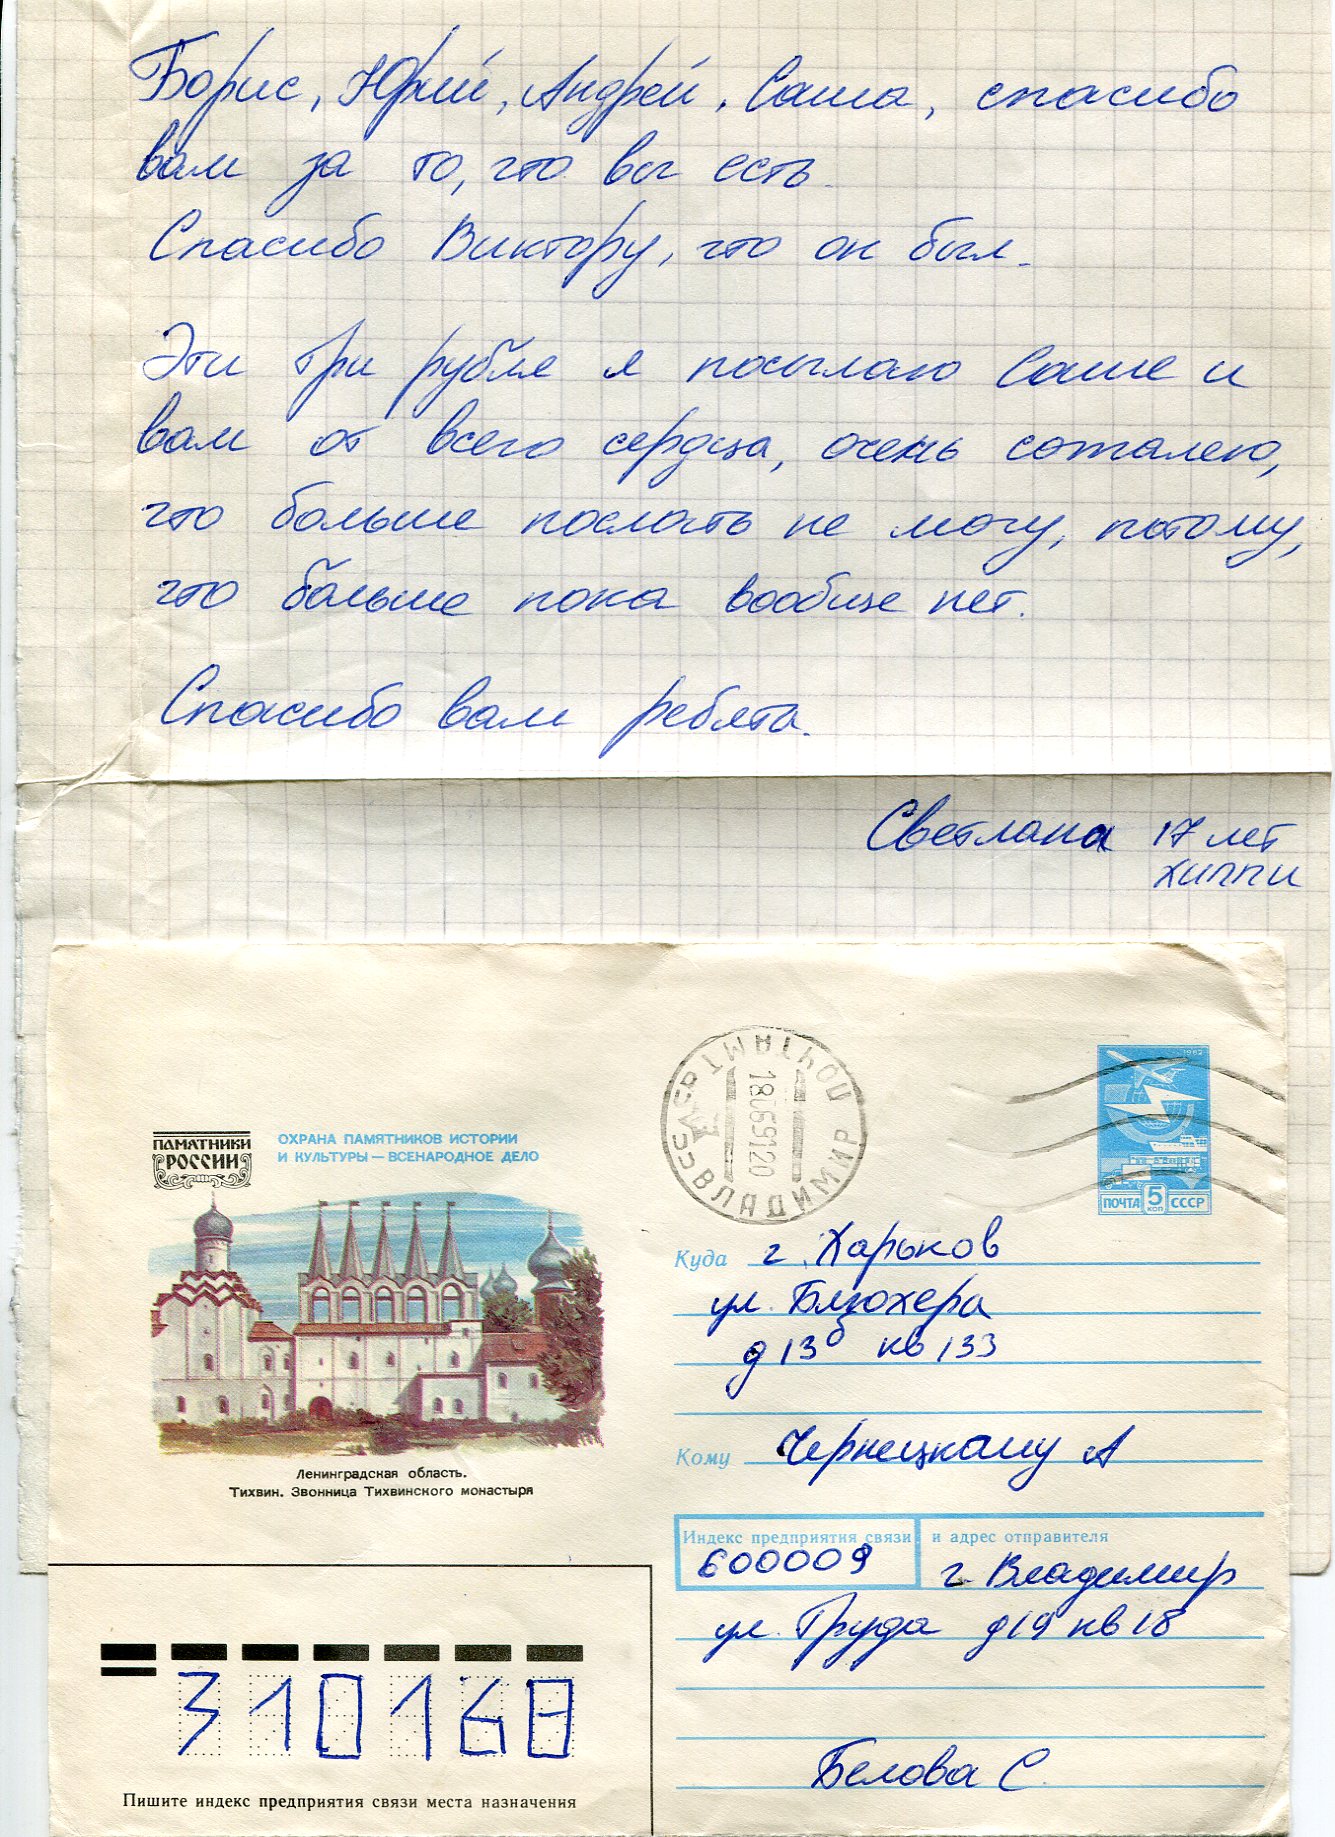 Борис, Юрий, Андрей, Саша, спасибо
вам за то, что вы есть.
Спасибо Виктору, что он был.
Эти три рубля я посылаю Саше и
вам от всего сердца, очень сожалею,
что больше послать не могу, потому,
что больше пока вообще нет.
Спасибо вам ребята.
Светлана 17 лет
хиппи
ПАМЯТНИКИ
РОССИИ
ОХРАНА ПАМЯТНИКОВ ИСТОРИИ
И КУЛЬТУРЫ — ВСЕНАРОДНОЕ ДЕЛО
ПОЧТАМТ
ВЛАДИМИР
1982
ПОЧТА 5 КОП СССР
Куда г. Харьков
ул. Блюхера
д 13б кв 133
Кому Чернецкому А
Ленинградская область.
Тихвин. Звонница Тихвинского монастыря
Индекс предприятия связи и адрес отправителя
600009 г. Владимир
ул. Труда д 19 кв 18
Белова С.
310168
Пишите индекс предприятия связи места назначения